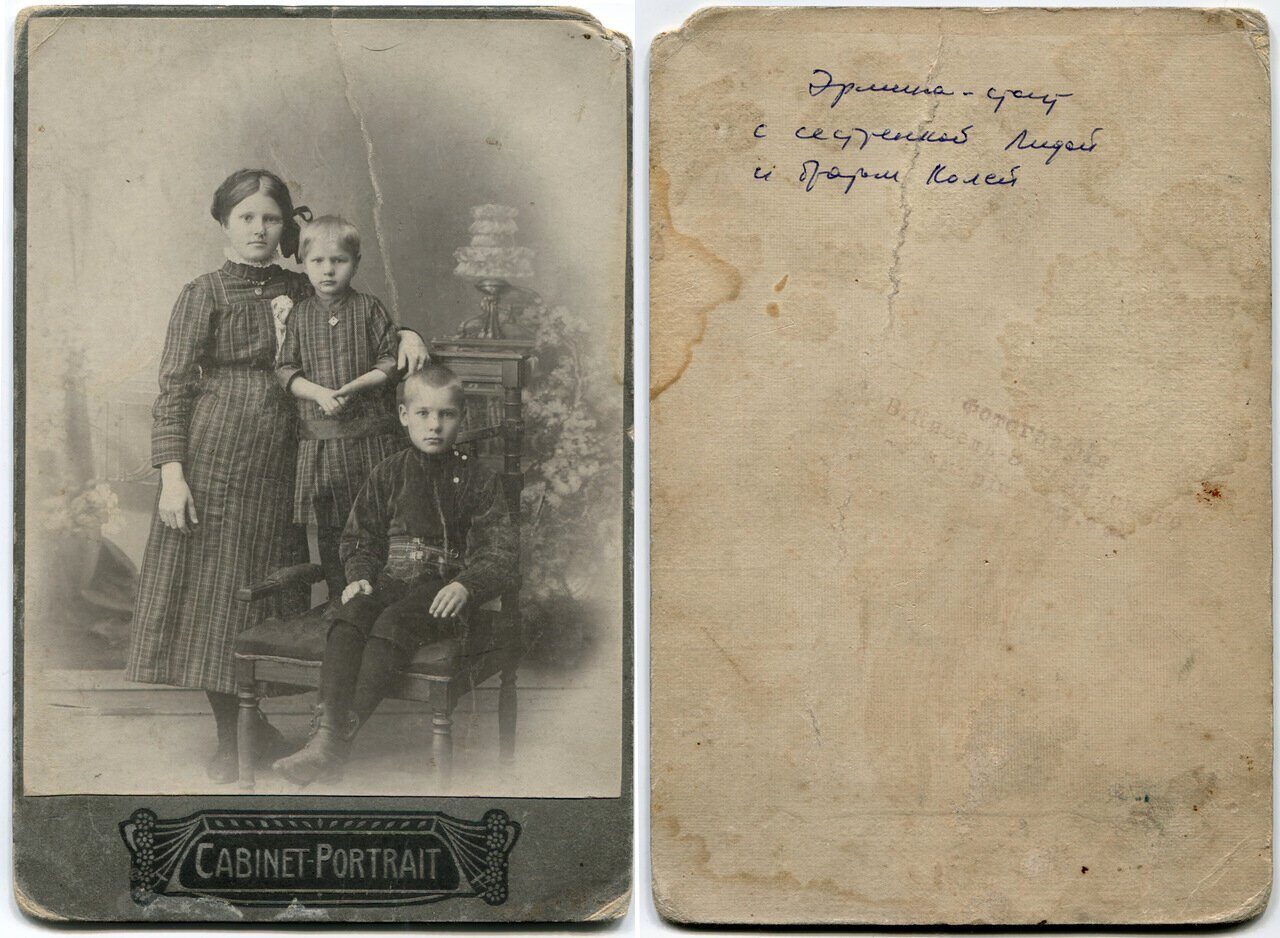 CABINET-PORTRAIT
Эрмина - стоит
с сестренкой Лидой
и братом Колей
Фотографія